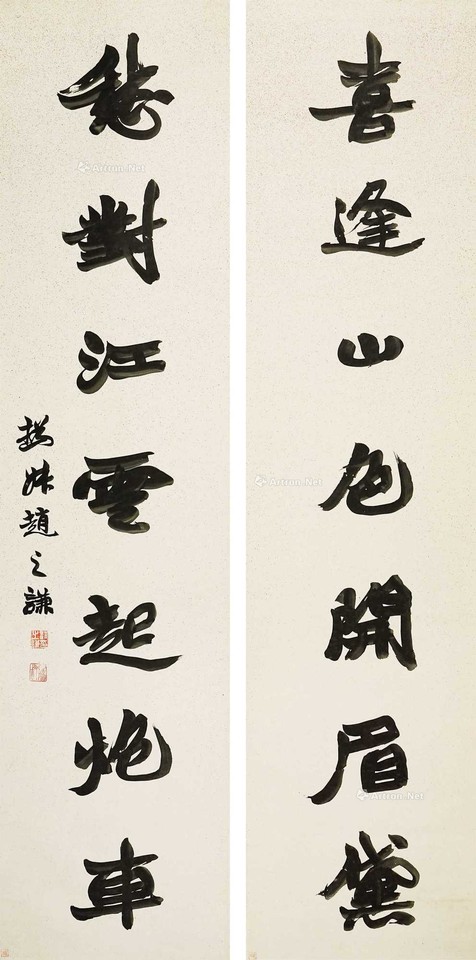 喜逢山色開眉黛
愁對江雲起炮車
撝叔趙之謙
Artron.Net
Artron.Net
Artron.Net